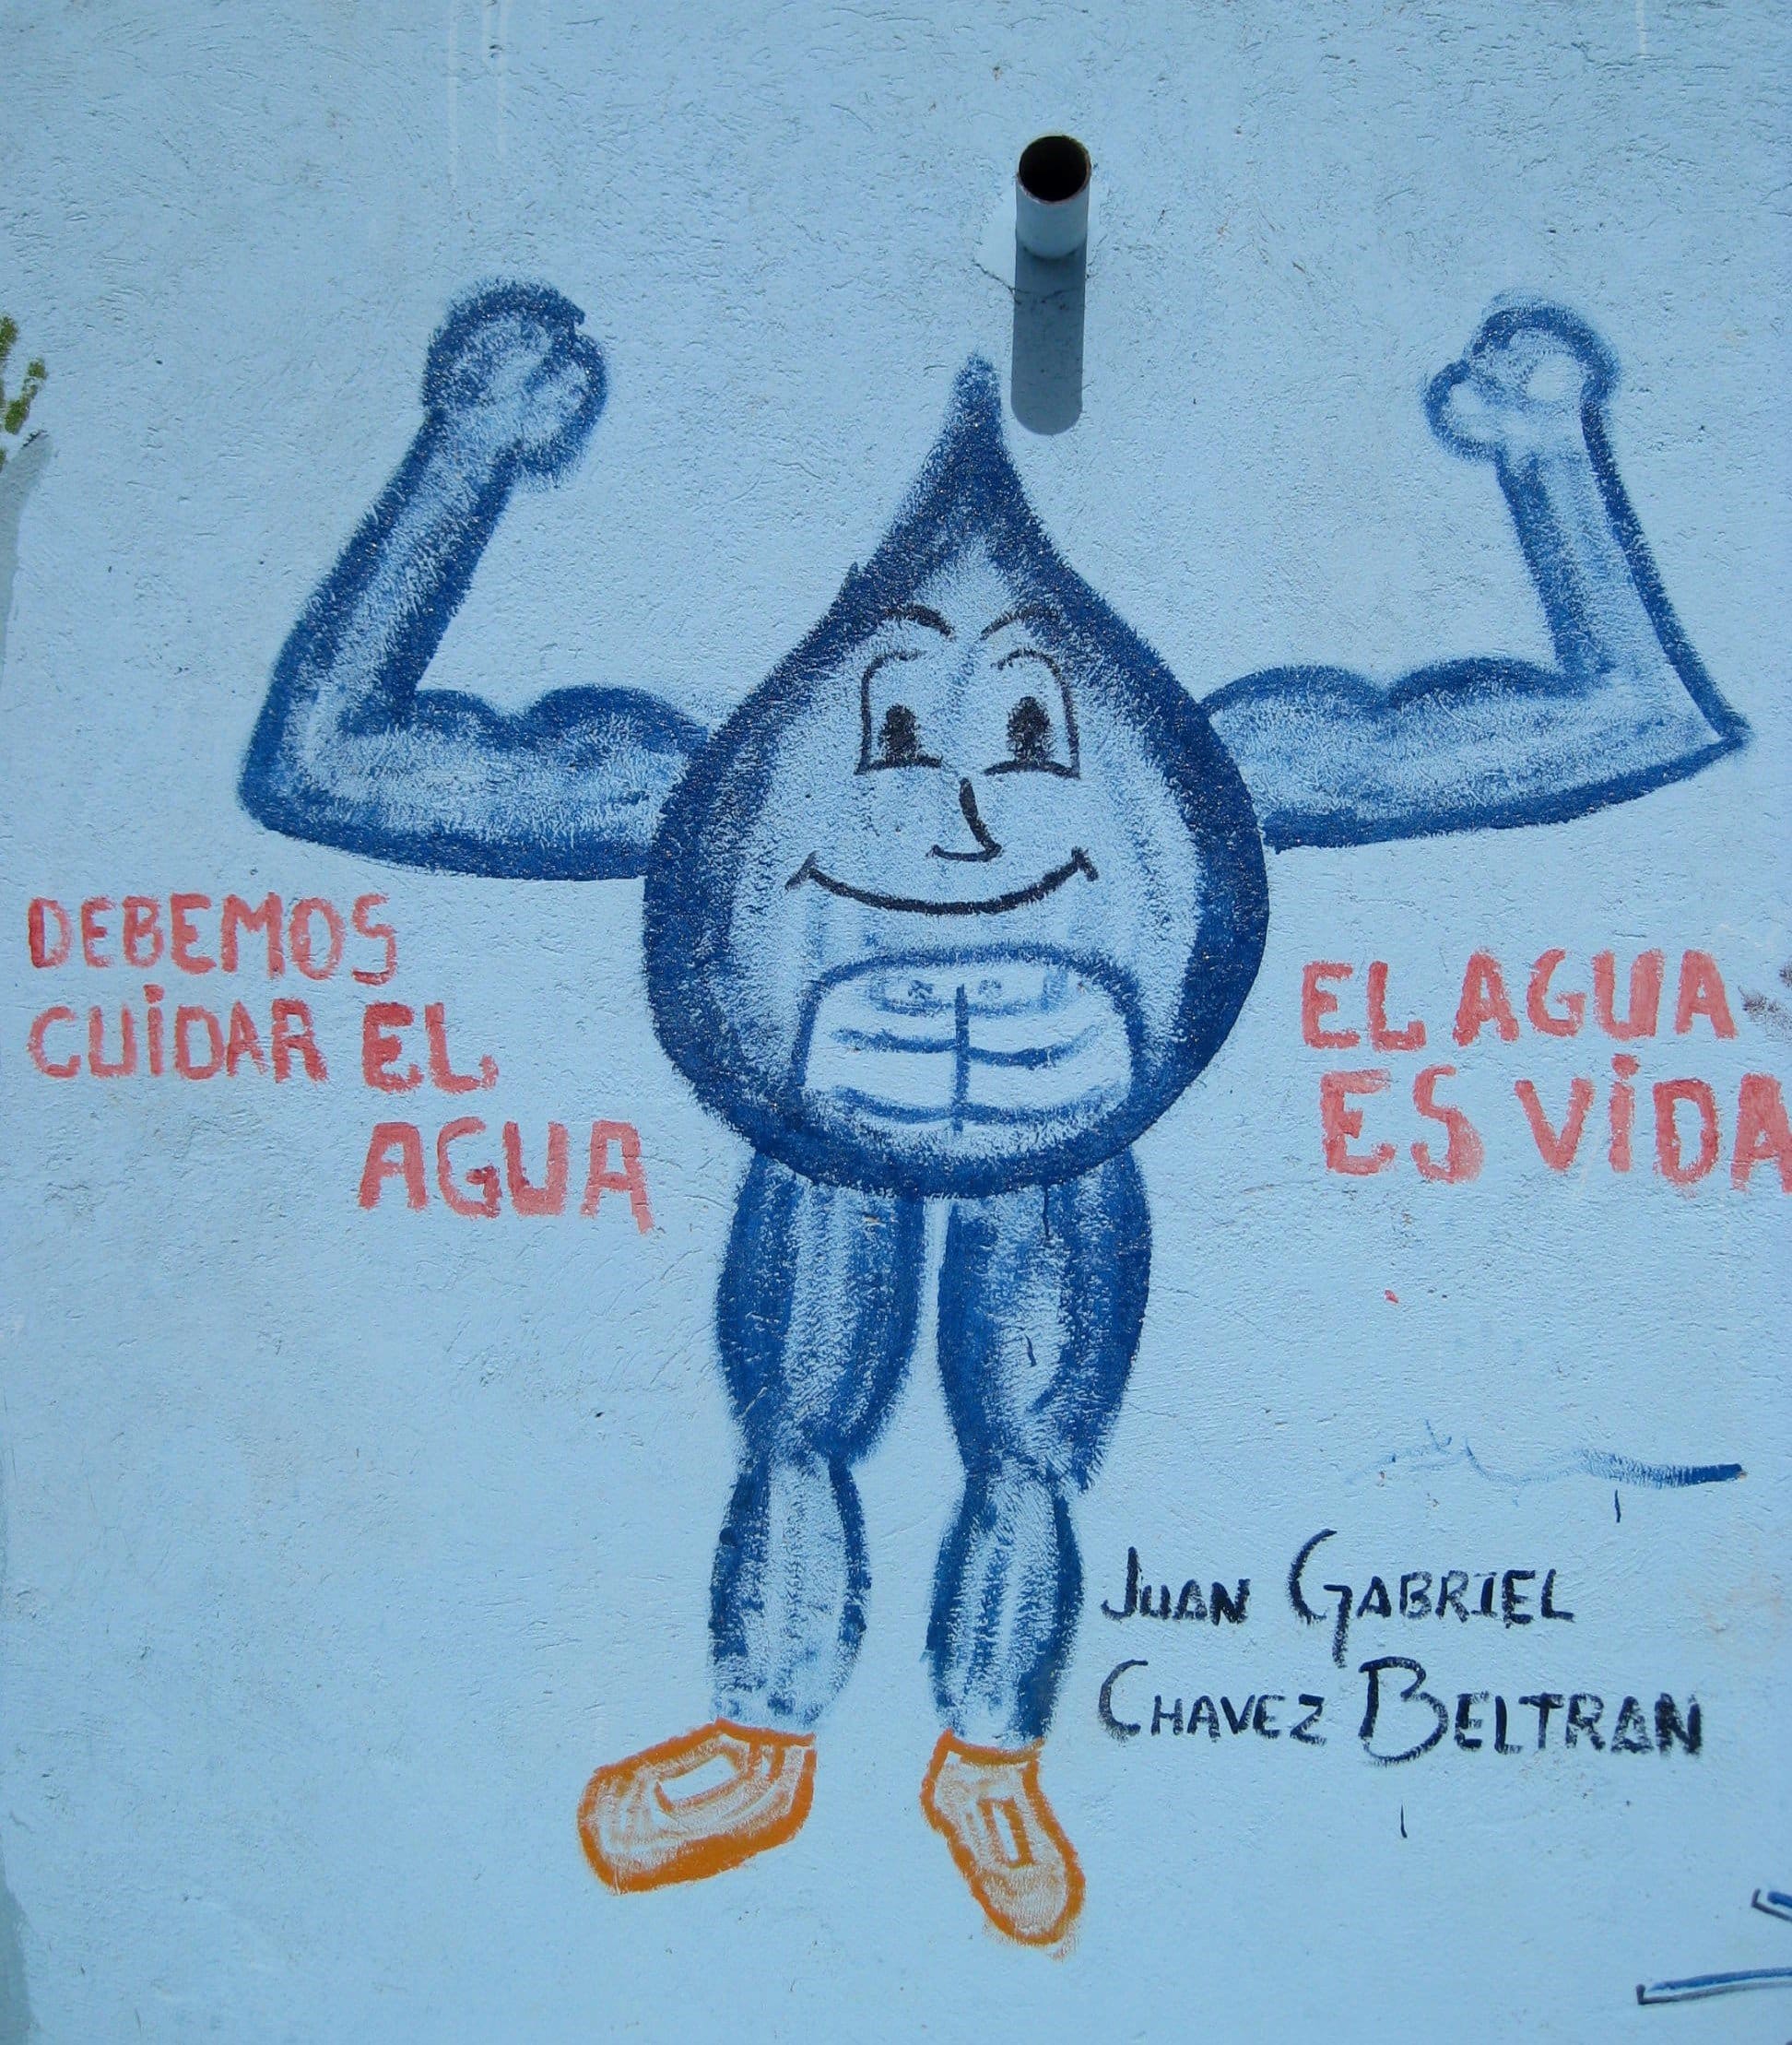 DEBEMOS
CUiDAR EL
AGUA
EL AGUA
ES ViDA
JUAN GABRIEL
CHAVEZ BELTRAN